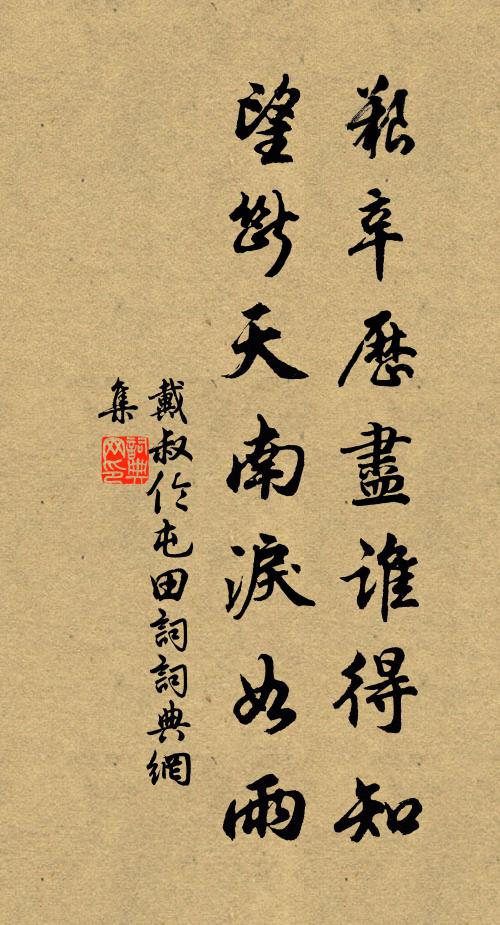 艱辛歷盡誰得知
望斷天南淚如雨
戴叔伦屯田詞詞典網
集
詞典网印